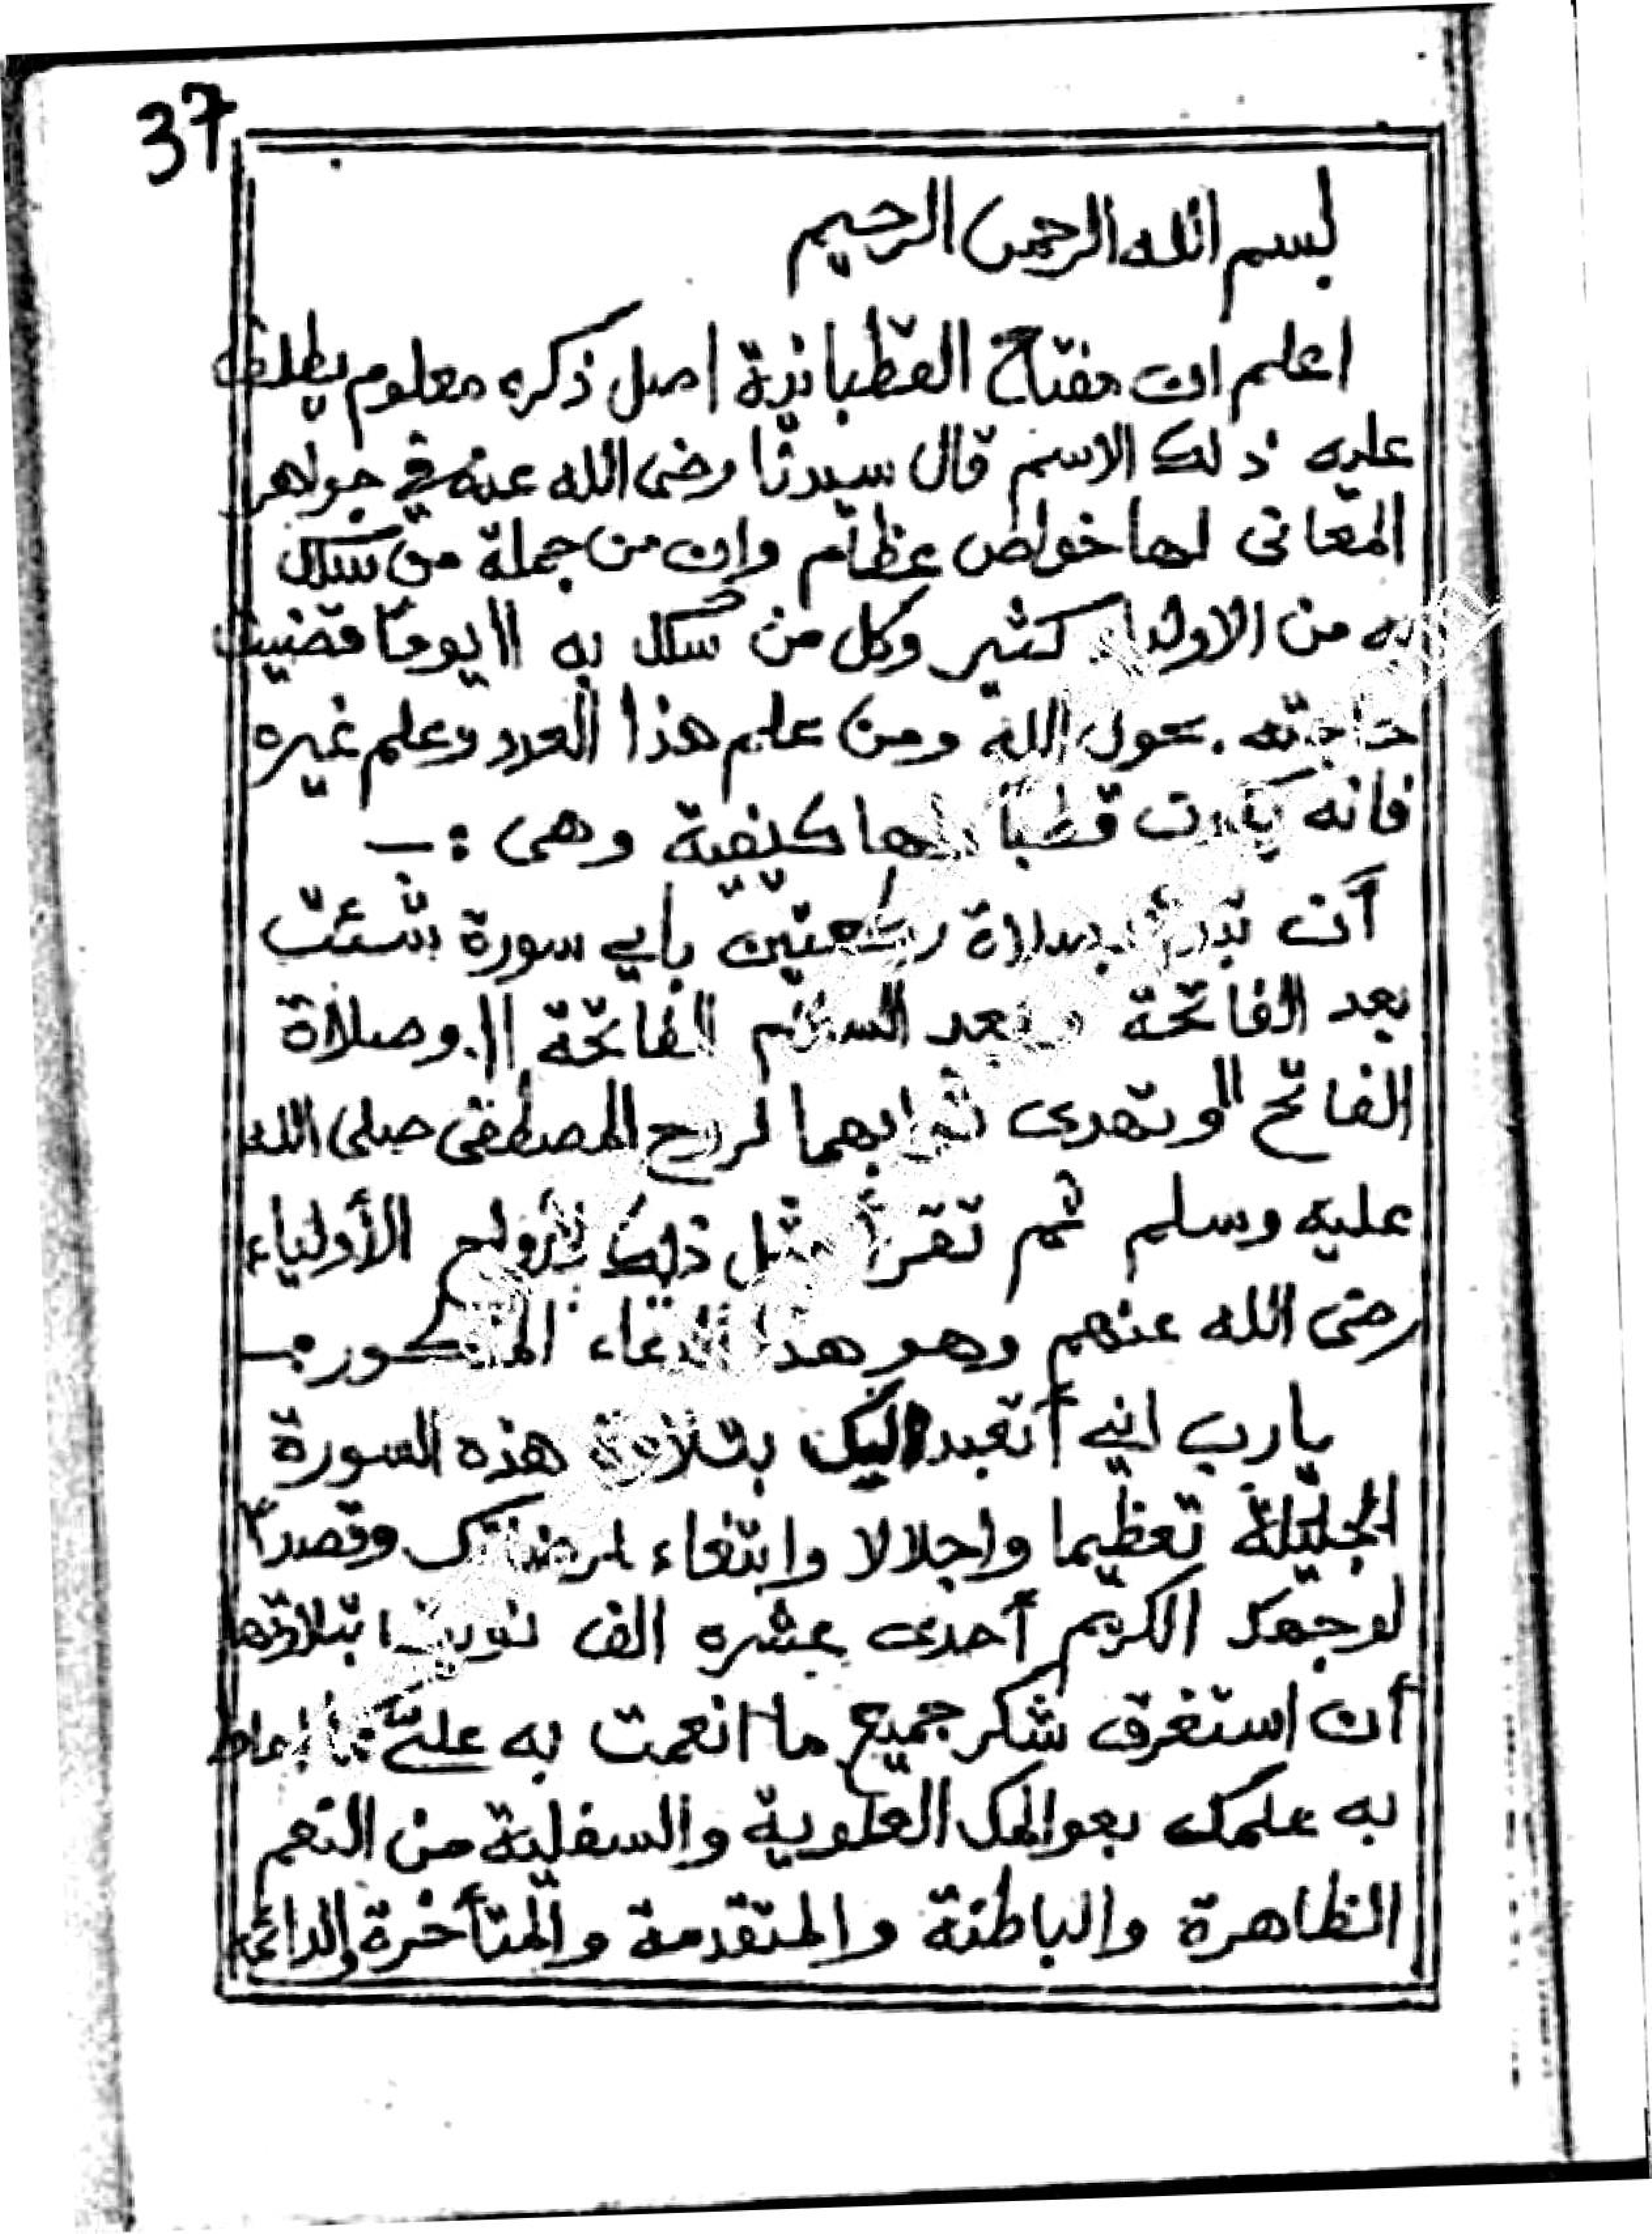 37
بسم الله الرحمن الرحيم
اعلم ان مفتاح القطبانية اصل ذكره معلوم يطلق
عليه ذلك الاسم قال سيدنا رضى الله عنه في جواهر
المعانى لها خواص عظام وإن من جملة من سكك
به من الاولياء كثير وكل من سكك به 11 يوما قضيت
حاجته بحول الله ومن علم هذا العدد وعلم غيره
فانه قطبا لها كيفية وهى :-
أن تبدأ بصلاة ركعتين بأي سورة شئت
بعد الفاتحة وبعد السلام الفاتحة 11 وصلاة
الفاتح 11 وتهدى ثوابهما لروح المصطفى صلى الله
عليه وسلم ثم تقرأ مثل ذلك لأرواح الأولياء
رضى الله عنهم وهو هذا الدعاء المذكور :-
يارب اني أتعبد اليك بتلاوة هذه السورة
الجليلة تعظيما واجلالا وابتغاء لمرضاتك وقصدا
لوجهك الكريم أحدى عشره الف نويت بتلاوتها
أن استغرق شكر جميع ما انعمت به عليّ مما احاط
به علمك بعوالمك العلوية والسفلية من النعم
الظاهرة والباطنة والمتقدمة والمتأخرة والدائمة